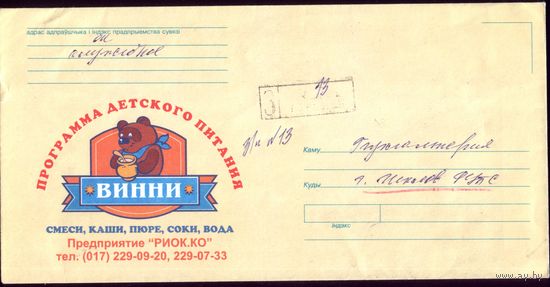 адрас адпраўшчыка і індэкс прадпрыемства сувязі
ПРОГРАММА ДЕТСКОГО ПИТАНИЯ
"ВИННИ"
СМЕСИ, КАШИ, ПЮРЕ, СОКИ, ВОДА
Предприятие "РИОК.КО"
тел: (017) 229-09-20, 229-07-33
13
з/п №13
Каму Бухгалтерия
Куды г. Шклов
індэкс
www.ay.by